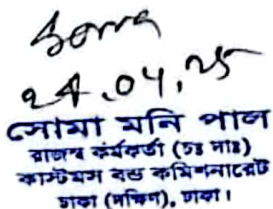 24.04.25
সোমা মনি পাল
রাজস্ব কর্মকর্তা (চঃ দাঃ)
কাস্টমস বন্ড কমিশনারেট
ঢাকা (দক্ষিণ), ঢাকা।